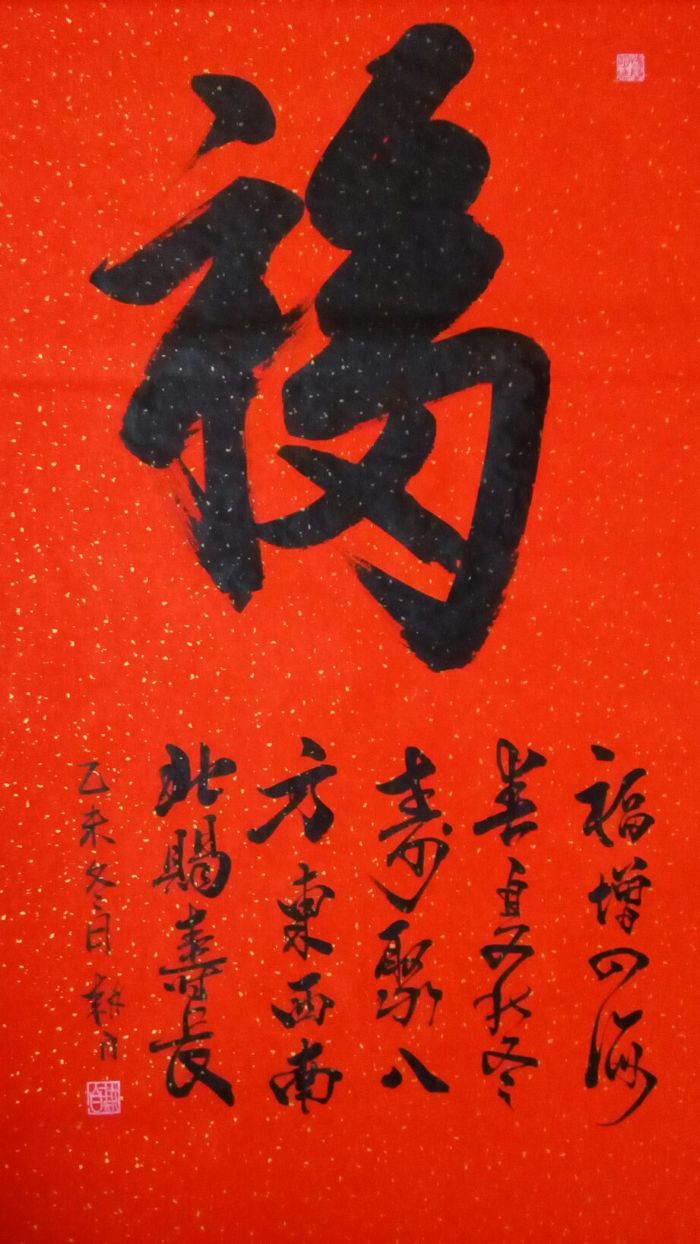 福
福增四海
春夏秋冬
壽聚八
方東西南
北賜壽長
乙未冬日